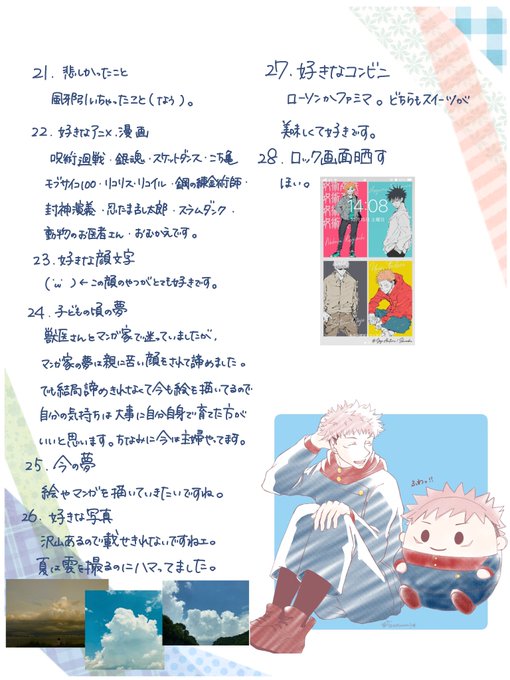 21. 悲しかったこと
風邪引いちゃったこと(なう)。
22. 好きなアニメ・漫画
呪術廻戦・銀魂・スケットダンス・こち亀
モブサイコ100・リコリス・リコイル・鋼の錬金術師・
封神演義・忍たま乱太郎・スラムダンク・
動物のお医者さん・おむかえです。
23. 好きな顔文字
←この顔のやつがとても好きです。
24. 子どもの頃の夢
獣医さんとマンガ家で迷っていましたが、
マンガ家の夢は親に苦い顔をされて諦めました。
でも結局諦めきれなくて今も絵を描いてるので
自分の気持ちは大事に自分自身で育てた方が
いいと思います。ちなみに今は主婦やってます。
25. 今の夢
絵やマンガを描いていきたいですね。
26. 好きな写真
沢山あるので載せきれないですねェ。
夏は雲を撮るのにハマってました。
27. 好きなコンビニ
ローソンかファミマ。どちらもスイーツが
美味しくて好きです。
28. ロック画面晒す
ほい。
呪術
14:08
ふわっ!!